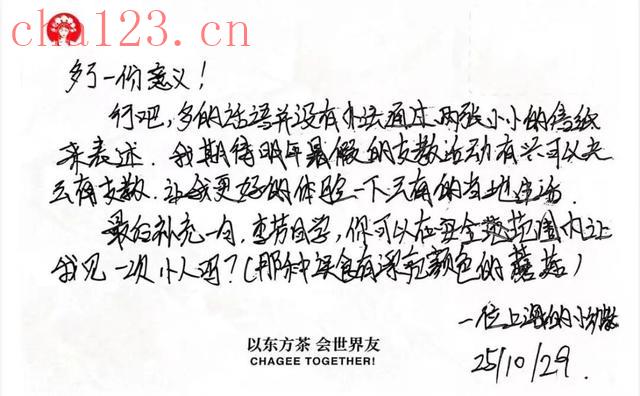 cha123.cn
多了一份意义！
行吧，多的话语并没有办法通过两张小小的信纸
来表述。我期待明年暑假的支教活动有兴可以去
云南支教，让我更好的体验一下云南的当地生活。
最后补充一句，李节同学，你可以在安全范围内让
我见一次小人吗？（那种误食有漂亮颜色的蘑菇）
一位上海的小
25/10/29
以东方茶 会世界友
CHAGEE TOGETHER!